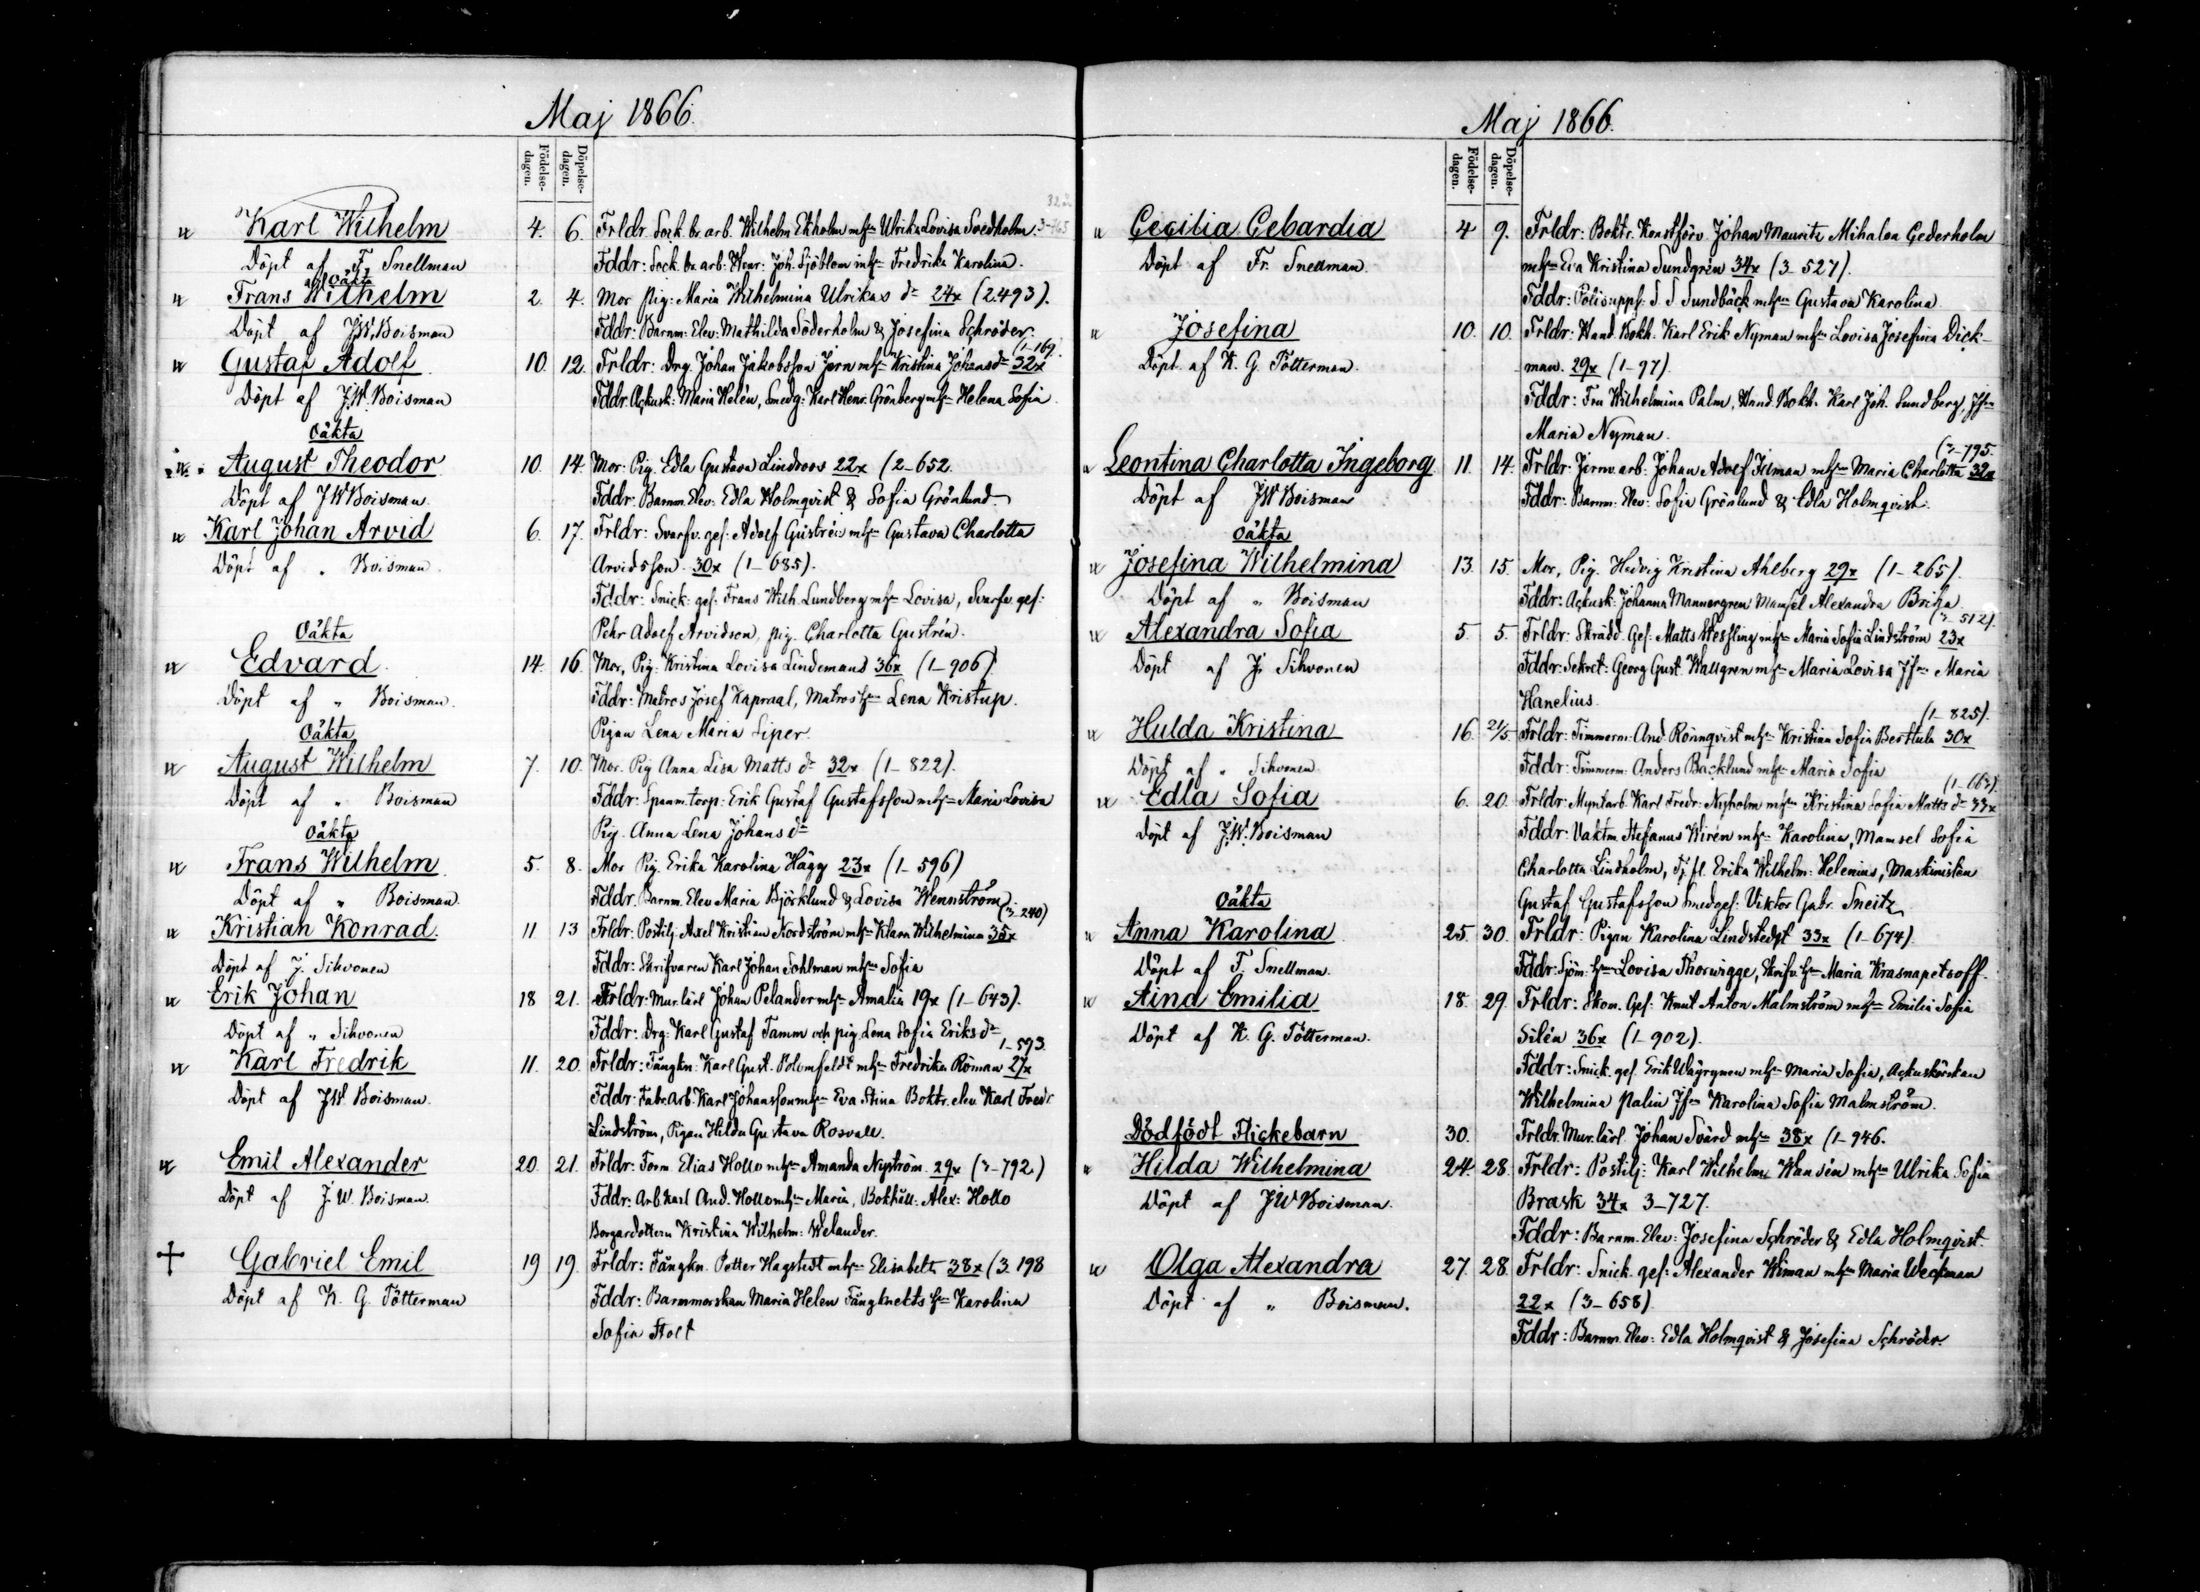 Maj 1866.
Födelse-
dagen.
Döpelse-
dagen.
32 år
Karl Wilhelm 4. 6. Frldr. Sock. br. arb. Wilhelm Ekholm mhn Ulrika Lovisa Svedholm. 3-465
Döpt af F. Snellman Fddr: Sock. br. arb: Henr: Joh. Sjöblom mhn Fredrika Karolina.
Oäkta
Frans Wilhelm 2. 4. Mor pig: Maria Wilhelmina Ulrikas dr 24x (2.493).
Döpt af J.W. Boisman Fddr: Barnm: Elev: Mathilda Söderholm & Josefina Schröder.
(1-169.
Gustaf Adolf 10. 12. Frldr: Drg. Johan Jakobsson Jern mhn Kristina Johansdr 32x
Döpt af J.W. Boisman Fddr. Ackusk: Maria Helén, Smedg: Karl Henr. Grönberg mhn Helena Sofia
Oäkta
August Theodor 10. 14. Mor: Pig. Edla Gustava Lindroos 22x (2-652.
Döpt af J W Boisman. Fddr: Barnm. Elev: Edla Holmqvist & Sofia Grönlund
Karl Johan Arvid 6. 17. Frldr: Svarfv. ges: Adolf Gustrén mhn Gustava Charlotta
Döpt af „ Boisman. Arvidsson. 30x (1-685).
Fddr: Snick: ges: Frans Wilh. Lundberg mhn Lovisa, Svarfv. ges:
Oäkta Pehr Adolf Arvidson, pig. Charlotta Gustrén.
Edvard 14. 16. Mor, Pig. Kristina Lovisa Lindemans 36x (1-906)
Döpt af „ Boisman. Fddr: Matros Josef Kapraal, Matros hn Lena Kristup.
Oäkta Pigan Lena Maria Siper.
August Wilhelm 7. 10. Mor. Pig Anna Lisa Matts dr 32x (1-822).
Döpt af „ Boisman Fddr: Spanm. torp: Erik Gustaf Gustafsson mhn Maria Lovisa
Oäkta Pig. Anna Lena Johans dr
Frans Wilhelm 5. 8. Mor Pig Erika Karolina Hägg 23x (1-596)
Döpt af „ Boisman. Fddr. Barnm. Elev Maria Björklund & Lovisa Wennström
(3-240)
Kristian Konrad 11 13 Frldr: Postilj: Axel Kristian Nordström mhn Klara Wilhelmina 35x
Döpt af J. Sihvonen Fddr: Skrifvaren Karl Johan Sohlman mhn Sofia
Erik Johan 18 21. Frldr: Mur. lärl Johan Pelander mhn Amalia 19x (1-643).
Döpt af „ Sihvonen Fddr: Drg: Karl Gustaf Tamm och pig. Lena Sofia Eriks dr
1-593
Karl Fredrik 11. 20. Frldr: Fångkn: Karl Gust. Polomfeldt mhn Fredrika Roman 27x
Döpt af J.W. Boisman. Fddr: Fabr. Arb. Karl Johansson mhn Eva Stina Boktr. elev. Karl Fredr
Lindström, Pigan Hilda Gustava Rosvall.
Emil Alexander 20. 21. Frldr: Form. Elias Hollo mhn Amanda Nyström. 29x (3-792)
Döpt af J. W. Boisman. Fddr: Arb Karl And. Hollo mhn Maria, Bokhåll: Alex: Hollo
Borgardottern Kristina Wilhelm: Welander.
Gabriel Emil 19 19. Frldr: Fångkn. Petter Hagstedt mhn Elisabeth 38x (3. 198
Döpt af K. G. Tötterman Fddr: Barnmorskan Maria Helen Fångknekts hn Karolina
Sofia Stolt
Maj 1866.
Födelse-
dagen.
Döpelse-
dagen.
Cecilia Cebardia 4 9. Frldr: Boktr. Konstförv. Johan Mauritz Mihalon Cederholm
Döpt af Fr. Snellman. mhn Eva Kristina Sundgrén 34x (3-527).
Fddr: Polisuppf: S. S Sundbäck mhn Gustava Karolina.
Josefina 10. 10. Frldr: Hand. Bokh. Karl Erik Nyman mhn Lovisa Josefina Dick-
Döpt. af K. G. Tötterman. man. 29x (1-97).
Fddr: Fru Wilhelmina Palm, Hand. Bokh. Karl Joh. Sundberg, Jfn
Maria Nyman.
(3-795.
Leontina Charlotta Ingeborg 11. 14. Frldr: Jernv. arb: Johan Adolf Ilman mhn Maria Charlotta 32x
Döpt af J W Boisman Fddr: Barnm: Elev: Sofia Grönlund & Edla Holmqvist.
Oäkta
Josefina Wilhelmina 13. 15. Mor, Pig. Hedvig Kristina Ahlberg 29x (1-265).
Döpt af „ Boisman Fddr: Ackusk: Johanna Mannergren Mamsel Alexandra Briha
(3-512).
Alexandra Sofia 5. 5. Frldr: Skrädd. Ges: Matts Hessling mhn Maria Sofia Lindström 23x
Döpt af J. Sihvonen Fddr: Sekret: Georg Gust. Wallgren mhn Maria Lovisa Jfn Maria
Hanelius.
(1-825).
Hulda Kristina 16. 21/5. Frldr: Timmerm: And. Rönnqvist mhn Kristina Sofia Berttula 30x
Döpt af „ Sihvonen Fddr: Timmerm: Anders Backlund mhn Maria Sofia
(1-663)
Edla Sofia 6. 20. Frldr: Myntarb. Karl Fredr: Nyholm mhn Kristina Sofia Matts dr 33x
Döpt af J.W. Boisman Fddr: Vaktm. Stefanus Wirén mhn Karolina, Mamsel Sofia
Charlotta Lindholm, Tj. fl. Erika Wilhelm: Helenius, Maskinisten
Oäkta Gustaf Gustafsson Smedges: Viktor Gabr. Sneitz
Anna Karolina 25. 30. Frldr: Pigan Karolina Lindstedt 33x (1-674)
Döpt af F. Snellman. Fddr: Sjöm. hn Lovisa Thorwigge, Skrifv. hn Maria Krasnapetsoff.
Aina Emilia 18. 29. Frldr: Ekon. Ges: Knut Anton Malmström mhn Emilia Sofia
Döpt af K. G. Tötterman. Silén 36x (1-902).
Fddr: Snick. ges. Erik Wägrynen mhn Maria Sofia, Ackuskörskan
Wilhelmina Palin Jfn Karolina Sofia Malmström.
Dödfödt Flickebarn 30. Frldr. Mur. lärl. Johan Svärd mhn 38x (1-946.
Hilda Wilhelmina 24. 28. Frldr: Postilj: Karl Wilhelm Wansén mhn Ulrika Sofia
Döpt af J W Boisman. Brask 34x 3-727.
Fddr: Barnm. Elev: Josefina Schröder & Edla Holmqvist.
Olga Alexandra 27. 28. Frldr: Snick. ges: Alexander Wiman mhn Maria Weckman
Döpt af „ Boisman. 22x (3-658)
Fddr: Barnm. Elev: Edla Holmqvist & Josefina Schröder.